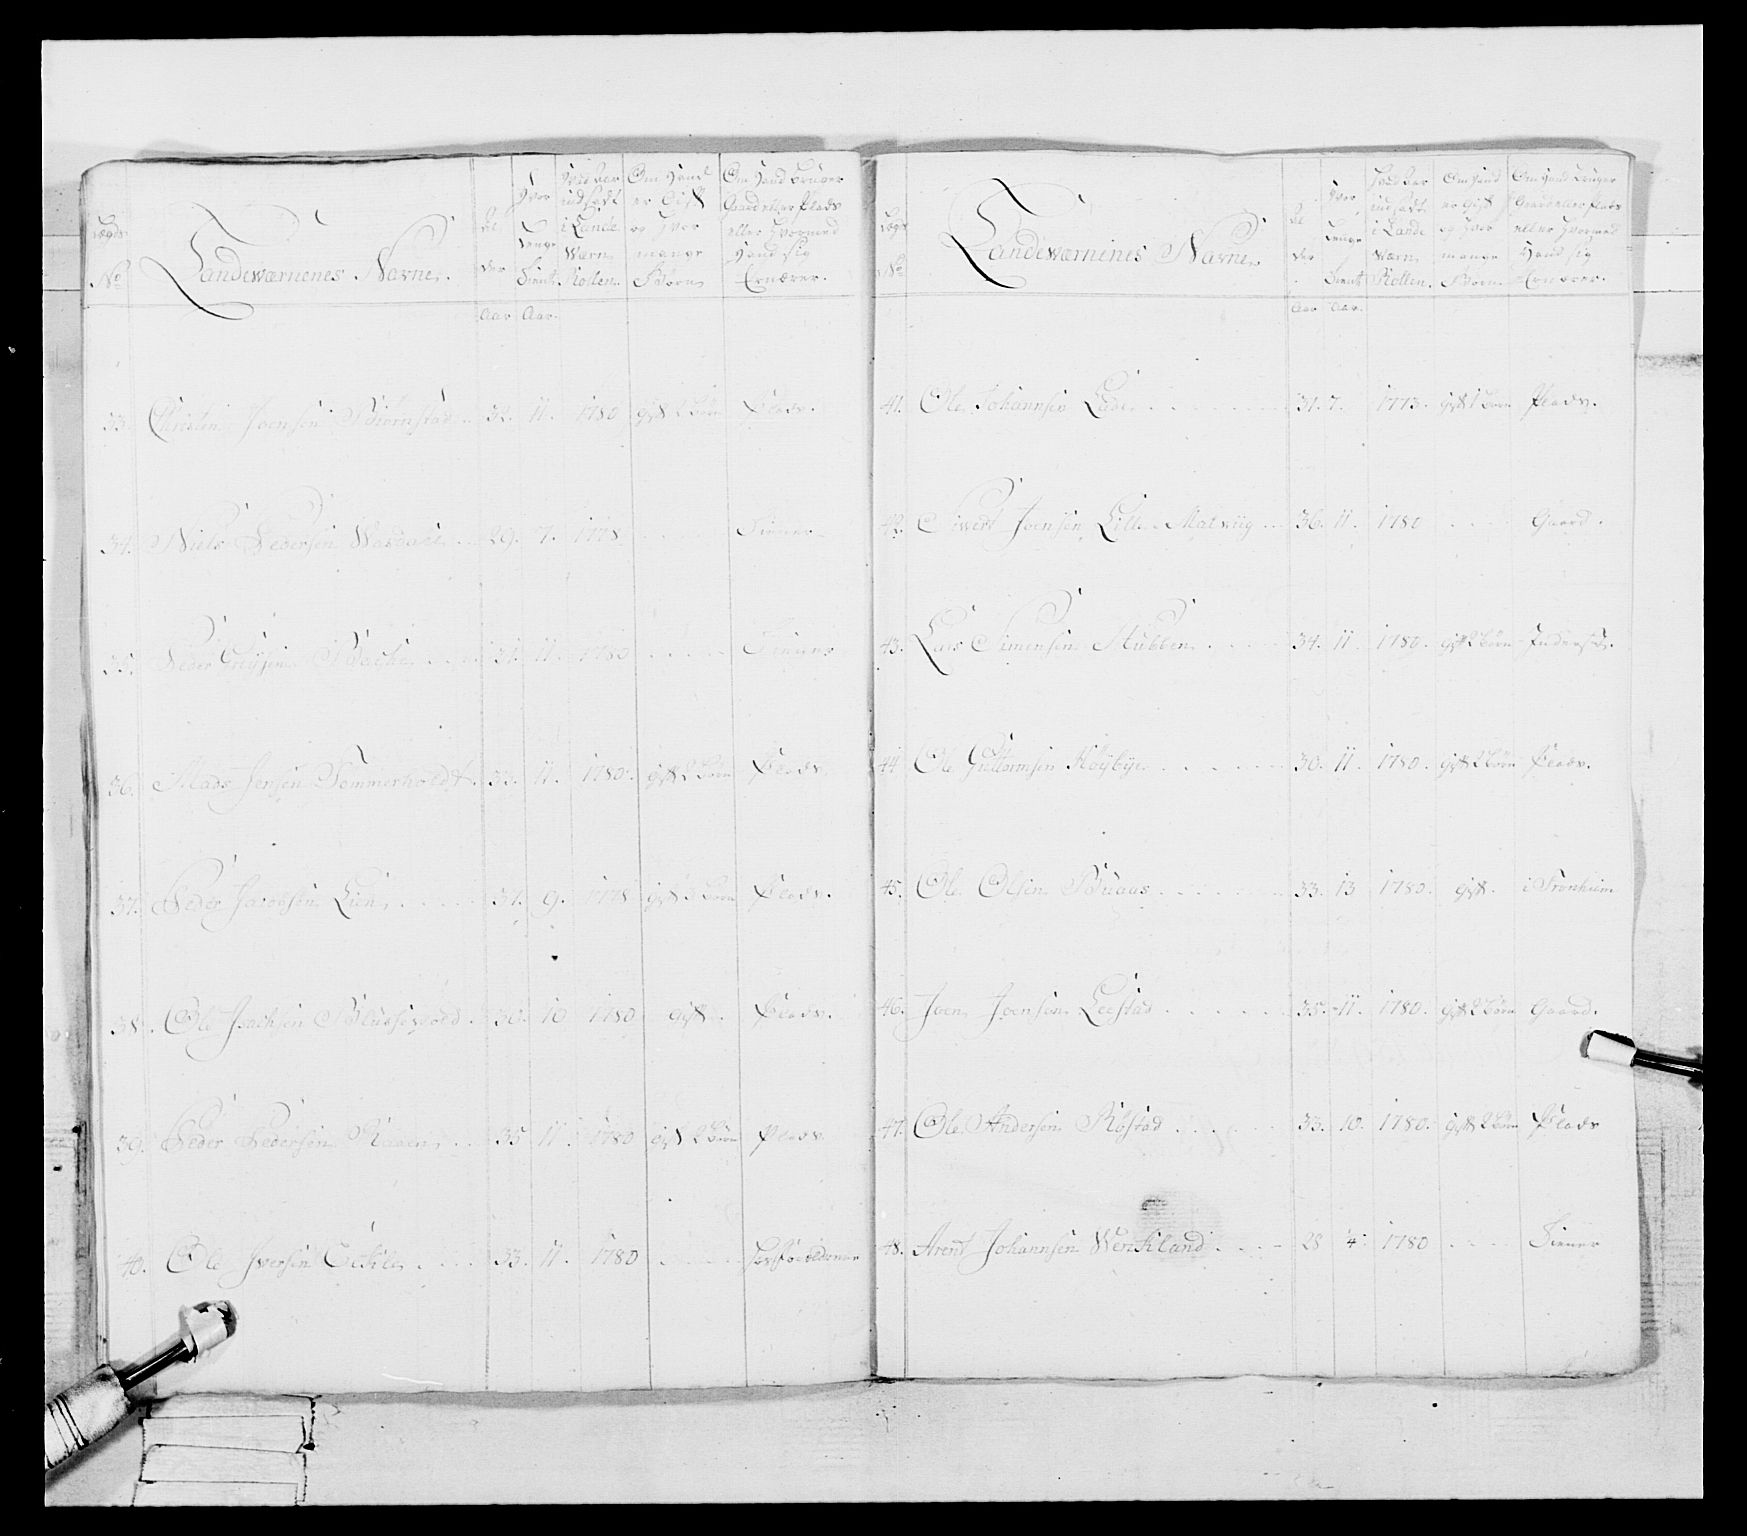 Lægds No
Landeværnenes Navne.
Al der
Hvor Længe Tient
Hvad Aar indsadt i Lande Værn Rollen.
Om Hand er Gift og Hvor mange Børn
Om Hand bruger Gaard eller Plads eller Hvormed Hand sig Ernærer.
Aar Aar.
33. Christen Joensen Biørnstad 32. 11. 1780 gift 2 Børn Plads.
34. Niels Pedersen 29. 7. 1778 Tiener
35. Peder Backe 31. 11. 1780 Tiener
36. Mads Jensen Sommerholdt. 32. 11. 1780. gift 2 Børn Plads.
37. Peder Jacobsen Lien 31. 9. 1778 gift 3 Børn Plads.
38. Ole 30. 10 1780 gift. Plads.
39. Peder Pedersen 35 11. 1780 gift 2 Børn Plads
40. Ole Iversen 33. 11. 1780
Lægds No
Landeværnenes Navne
Al der
Hvor Længe Tient
Hvad Aar indsadt i Lande Værn Rollen.
Om Hand er Gift og Hvor mange Børn
Om Hand bruger Gaard eller Plads eller Hvormed Hand sig Ernærer.
Aar Aar.
41. Ole Johannsen Lade 31. 7. 1773. gift 1 Børn Plads.
42. Siwert Joensen Lille Malwiig 36. 11. 1780 Gaard.
43. Lars Simensen Stubben 34. 11 1780. gift 2 Børn Inderst.
44 Ole Guttormsen Høybye 30. 11 1780. gift 2 Børn Plads.
45. Ole Olsen Buaas 33. 13 1780. gift. i Tronhiem
46. Joen Joensen Leestad 35. 11. 1780. gift 2 Børn Gaard.
47. Ole Andersen Røstad 33. 10. 1780. gift 2 Børn Plads
48. Arent Johannsen Werikland 28 4. 1780 Tiener